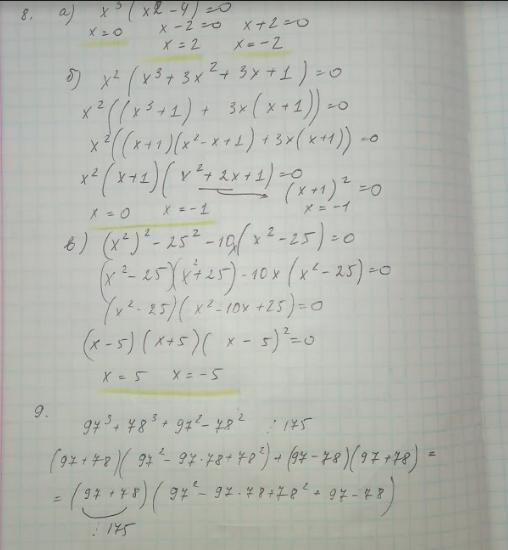 8. а) x³(x2-4)=0
x=0 x-2=0 x+2=0
x=2 x=-2
б) x²(x³+3x²+3x+1)=0
x²((x³+1)+3x(x+1))=0
x²((x+1)(x²-x+1)+3x(x+1))=0
x²(x+1)(x²+2x+1)=0
(x+1)²=0
x=0 x=-1 x=-1
в) (x²)²-25²-10x(x²-25)=0
(x²-25)(x²+25)-10x(x²-25)=0
(x²-25)(x²-10x+25)=0
(x-5)(x+5)(x-5)²=0
x=5 x=-5
9.
97³+78³+97²-78² ⋮175
(97+78)(97²-97·78+78²)+(97-78)(97+78)=
=(97+78)(97²-97·78+78²+97-78)
⋮175